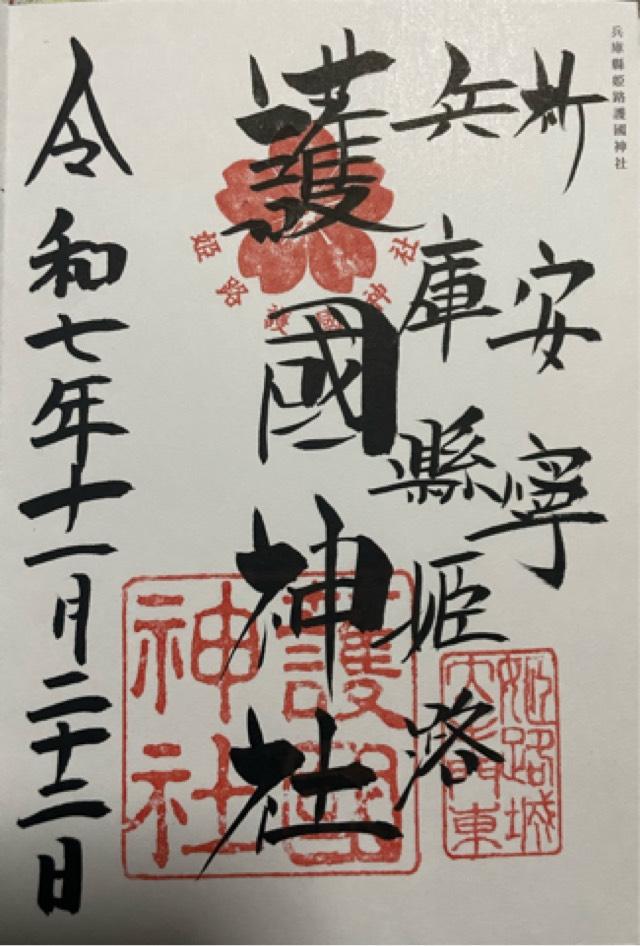 兵庫縣姫路護國神社
祈安寧
兵庫縣姫路
護國神社
令和七年十一月二十二日
姫路護國神社
護國神社
姫路城
東